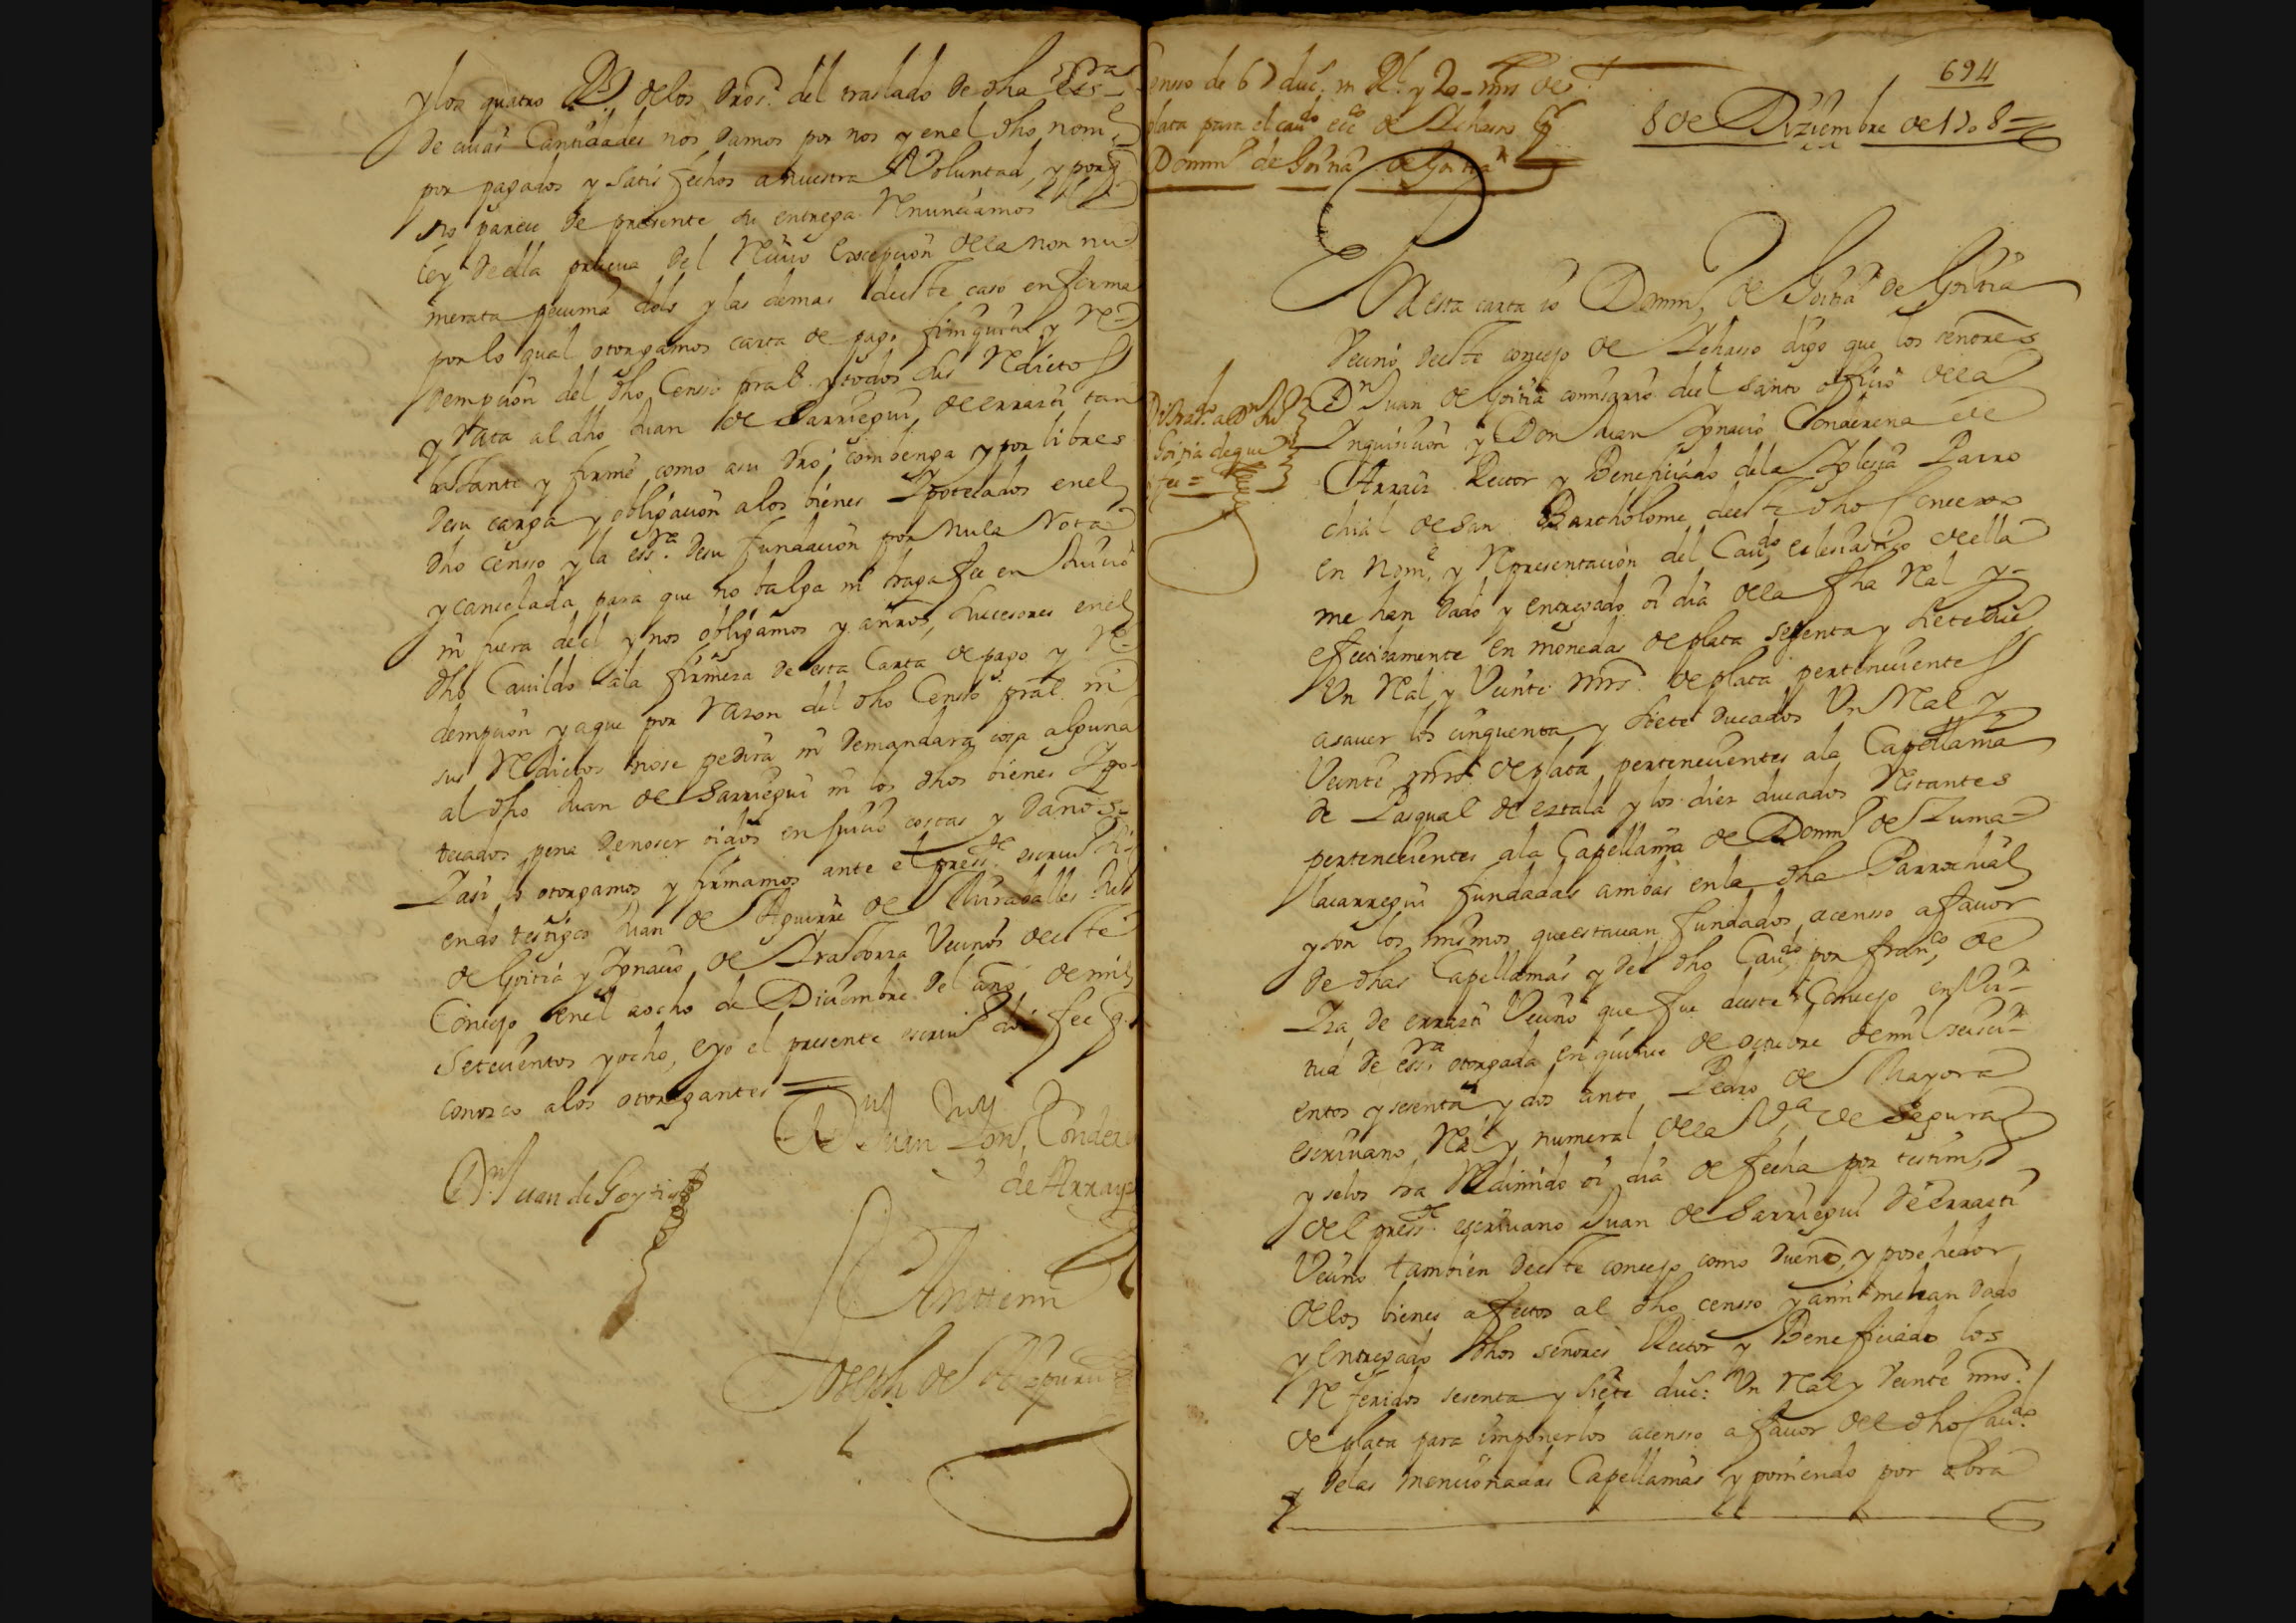 y los quatro Rs. de los dros. del traslado de dha essras
de cuias Cantidades nos damos por nos y en el dho nome
por pagados y satisfechos a nuestra Voluntad, y porq
no parece de presente su entrega Renunciamos
ley de ella prueua del Reciuo Excepcion de la non nu
merata pecunia dolo y las demas de este caso en forma
por lo qual otorgamos carta de pago finiquito y Re
dempcion del dho Censso pral y todos sus Reditos
y rata al dho Juan de Sarriegui de errazti tan
bastante y firme como a su dro combenga y por libres
de su carga y obligacion a los bienes Ypotecados en el
dho censso y la essra. de su fundacion por nula Rota
y cancelada para que no balga ni haga fee en Juicio
ni fuera de el y nos obligamos y a nros, subcesores en el
dho Cauildo a la firmeza de esta Carta de pago y Re
dempcion y a que por razon del dho Censso pral ni
sus Reditos no se pedira ni demandara cosa alguna
al dho Juan de Sarriegui ni los dhos bienes Ypo
tecados pena de no ser oidos en Juicio costas y daños
Y asi lo otorgamos y firmamos ante el presste escriuo si
endo testigos Juan de Aguirre de
de Goitia y Ygnacio de Vecinos de este
Concejo en el a ocho de Diciembre del año de mil
setecientos y ocho, e yo el presente escriuo doi fee q.
conozco a los otorgantes =
Dn Juan de Goytia
Dn Juan Conder
de Arrayz
Ante mi
Joseph de
censso de 67 ducs. un Rl. y 20 mrs de
plata para el caudo ecco de Ychasso
Domingo de Goitia de Goitia
694
8 de Diziembre de 1708 =
En esta carta io Domingo de Goitia de Goitia
Vecino de este concejo de Ychasso digo que los señores
Dn Juan de Goitia comisario del santo officio de la
Inquisicion y Don Juan Ygnacio Conderena de
Arraiz Rector y Beneficiado de la Yglesia Parro
chial de San Bartholome de este dho Concexo
en nome y Representacion del Caudo eclesiastico de ella
me han dado y entregado oi dia de la fha Real y
efectibamente en monedas de plata sesenta y siete ducs
Un Real y Veinte mrs. de plata pertenecientes
a sauer los cinquenta y siete ducados Un Real y
Veinte mrs de plata pertenecientes a la Capellania
de Pasqual de eztala y los diez ducados Restantes
pertenecientes a la Capellania de Domingo de Zuma
lacarregui fundadas ambas en la dha Parrochial
y son los mismos que estauan fundados a censso a fauor
de dhas Capellanias y del dho Caudo por Franco de
Yza de errazti Vecino que fue de este Concejo en Vir
tud de essra otorgada en quince de octubre de mil seisci
entos y sesenta y dos ante Pedro de Mayora
escriuano Real y numeral de la Va de Segura
y se los ha Redimido oi dia de fecha por testimo
del presste escriuano Juan de Sarriegui de errazti
Vecino tambien de este concejo como dueño y posehedor
de los bienes afectos al dho censso y a mi me han dado
y entregado dhos señores Rector y Beneficiado los
Referidos sesenta y siete ducs: Un Real y Veinte mrs.
de plata para imponerlos a censso a fauor del dho Caudo
y de las mencionadas Capellanias y poniendo por obra
Dn Ju
Goitia de que
fee =